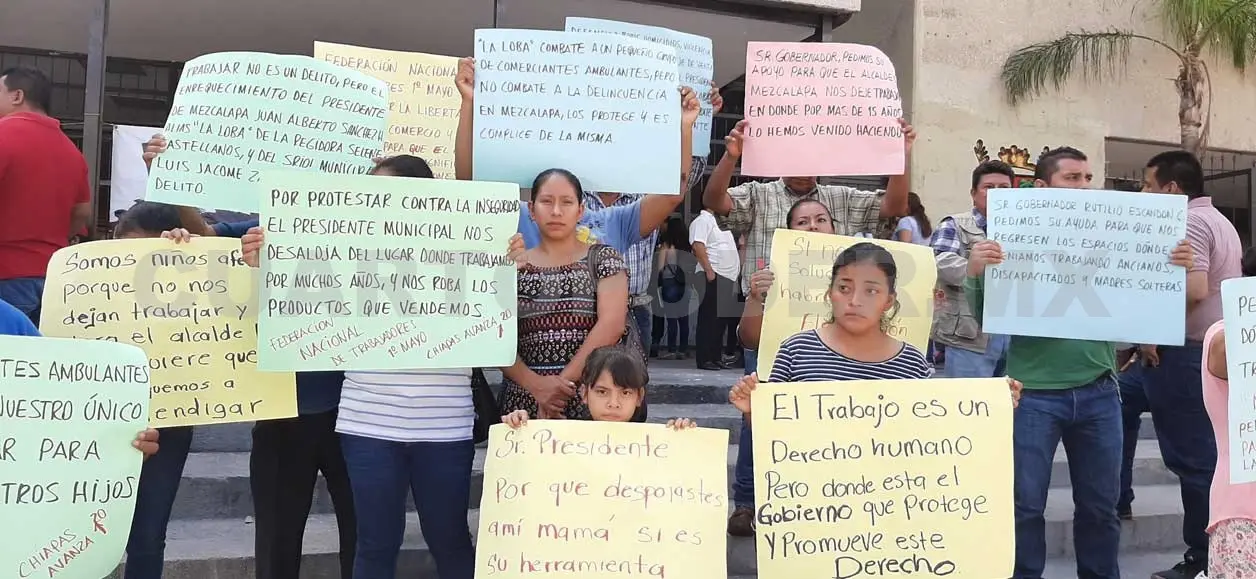 TRABAJAR NO ES UN DELITO, PERO EL
ENRIQUECIMIENTO DEL PRESIDENTE
DE MEZCALAPA JUAN ALBERTO SANCHEZ
ALIAS "LA LOBA" DE LA REGIDORA SELENE
CASTELLANOS, Y DEL SRIO MUNICIPAL
LUIS JACOME
DELITO.
FEDERACIÓN NACIONAL
1º MAYO
POR LA LIBERTA
COMERCIO Y
"LA LOBA" COMBATE A UN PEQUEÑO GRUPO
DE COMERCIANTES AMBULANTES, PERO
NO COMBATE A LA DELINCUENCIA
EN MEZCALAPA, LOS PROTEGE Y ES
COMPLICE DE LA MISMA
HOMICIDIOS, VIOLENCIA
SR. GOBERNADOR, PEDIMOS SU
APOYO PARA QUE EL ALCALDE
MEZCALAPA NOS DEJE TRABAJ
EN DONDE POR MAS DE 15 AÑOS
LO HEMOS VENIDO HACIENDO
POR PROTESTAR CONTRA LA INSEGURID
EL PRESIDENTE MUNICIPAL NOS
DESALOJA DEL LUGAR DONDE TRABAJAMO
POR MUCHOS AÑOS, Y NOS ROBA LOS
PRODUCTOS QUE VENDEMOS
FEDERACION
NACIONAL
DE TRABAJADORES
1º MAYO
CHIAPAS AVANZA
SR. GOBERNADOR RUTILIO ESCANDON C
PEDIMOS SU AYUDA PARA QUE NOS
REGRESEN LOS ESPACIOS DONDE
TENIAMOS TRABAJANDO ANCIANOS,
DISCAPACITADOS Y MADRES SOLTERAS
SOMOS NIÑOS
PORQUE NO NOS
DEJAN TRABAJAR Y
EL ALCALDE
QUIERE QUE
MENDIGAR
TES AMBULANTES
NUESTRO ÚNICO
AR PARA
TROS HIJOS
CHIAPAS
AVANZA
CUARTO MX
Sr. Presidente
Por que despojastes
amí mamá si es
Su herramienta
El Trabajo es un
Derecho humano
Pero donde esta el
Gobierno que Protege
Y Promueve este
Derecho